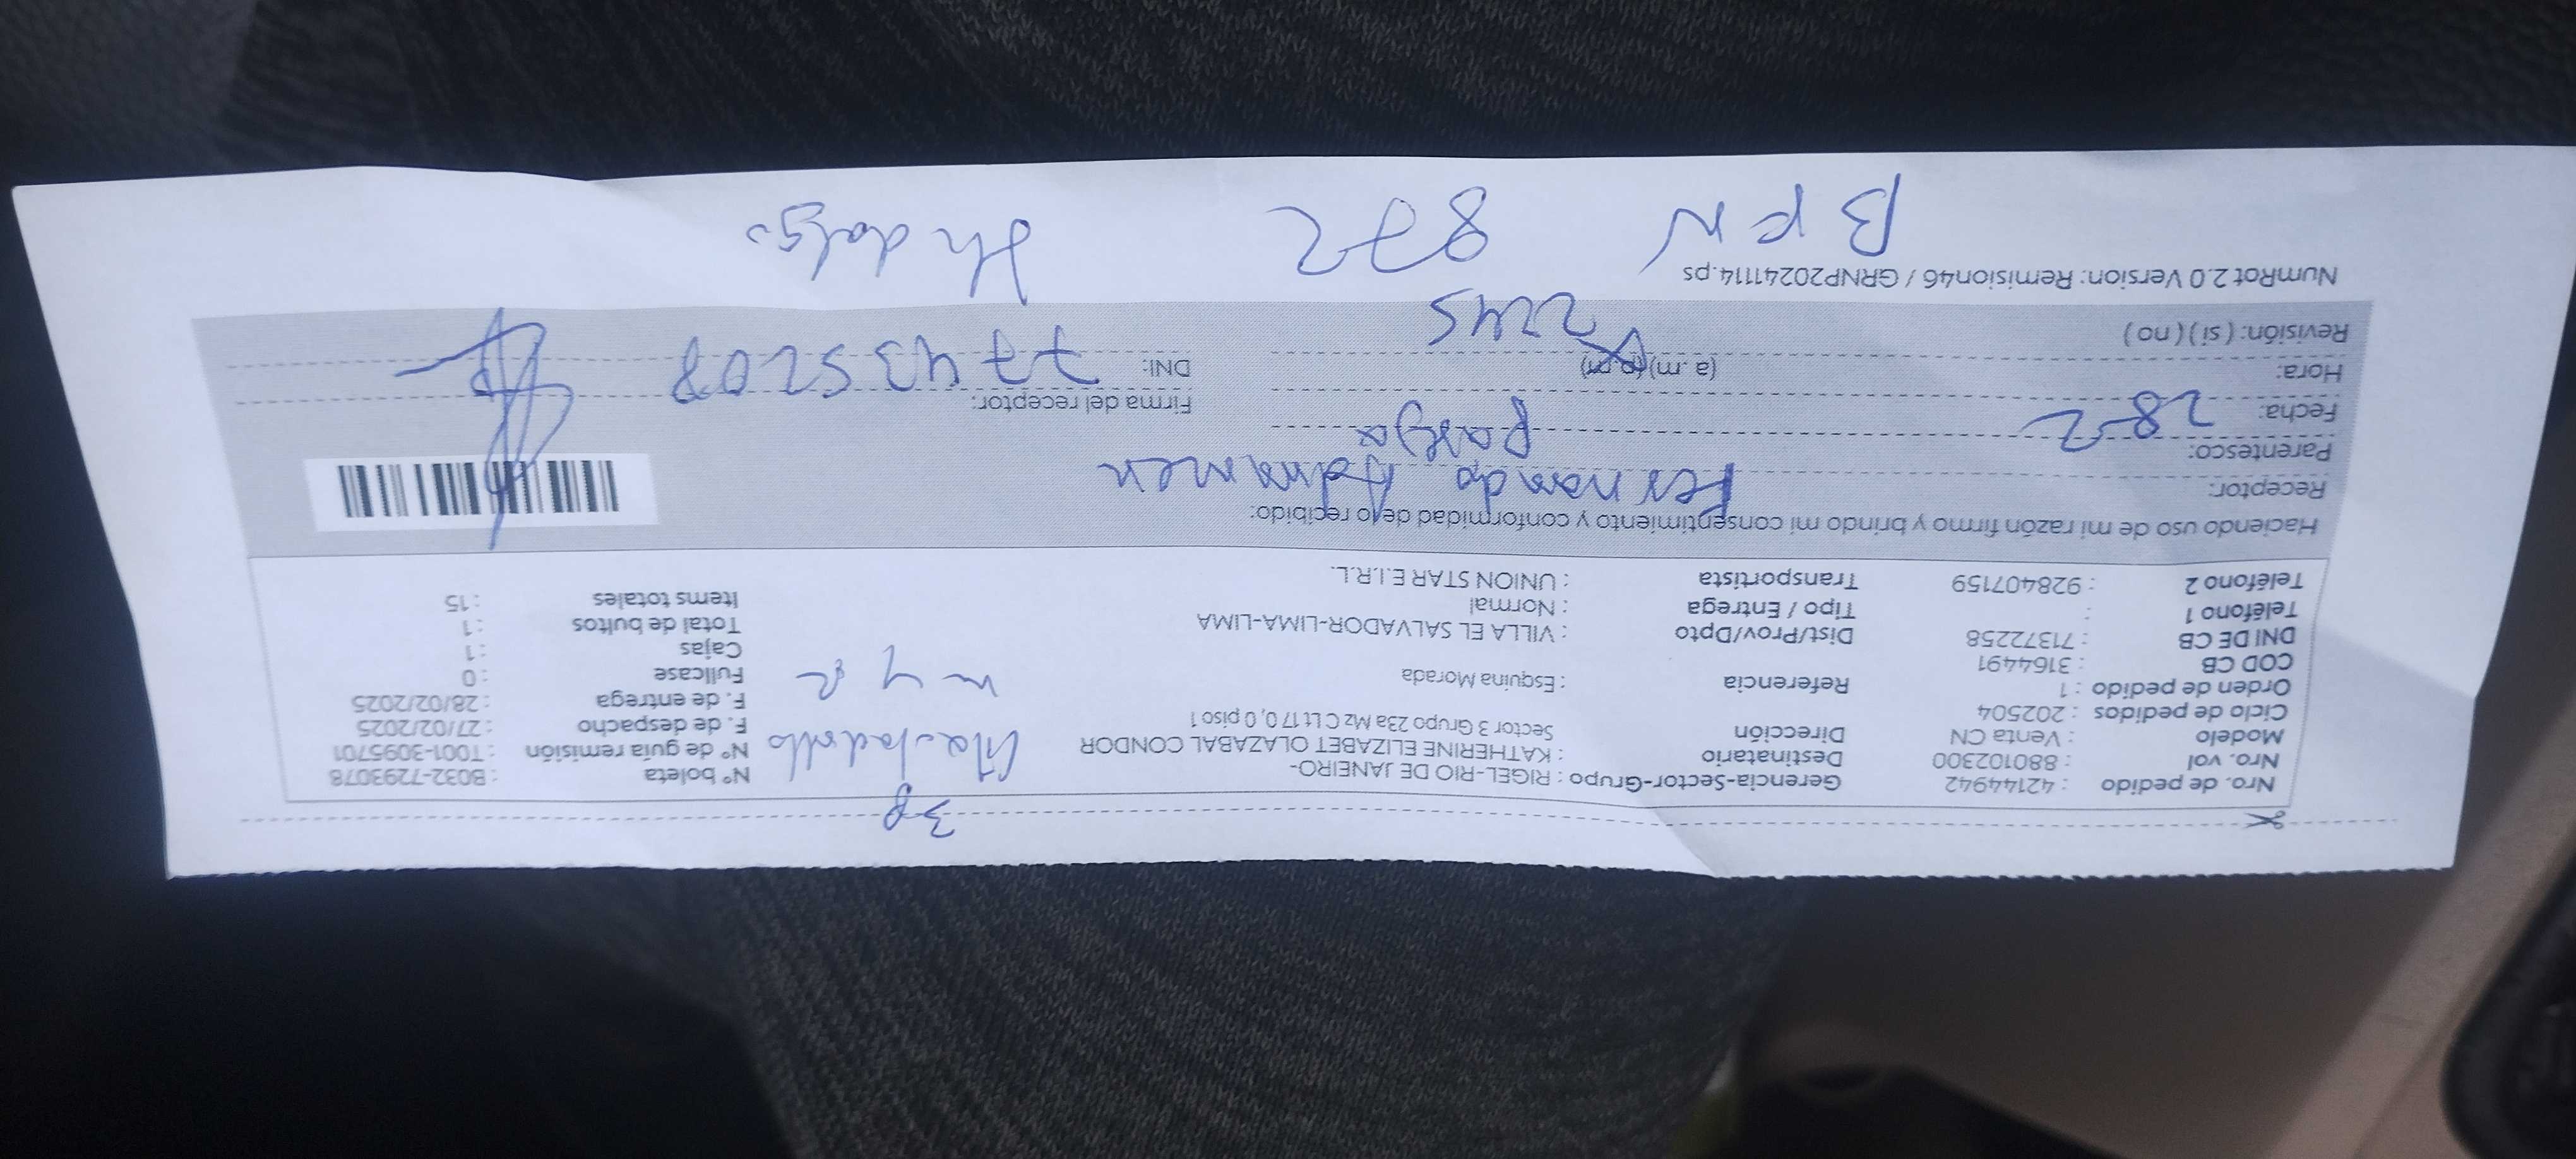 3p
Nro. de pedido : 42144942 Gerencia-Sector-Grupo : RIGEL-RIO DE JANEIRO- N° boleta : B032-7293078
Nro. vol : 880102300 Destinatario : KATHERINE ELIZABET OLAZABAL CONDOR N° de guía remisión : T001-3095701
Modelo : Venta CN Dirección Sector 3 Grupo 23a Mz C Lt 17 0, 0 piso 1 F. de despacho : 27/02/2025
Ciclo de pedidos : 202504 F. de entrega : 28/02/2025
Orden de pedido : 1 Referencia : Esquina Morada Fullcase : 0
COD CB : 3164491 Cajas : 1
DNI DE CB : 71372258 Dist/Prov/Dpto : VILLA EL SALVADOR-LIMA-LIMA Total de bultos : 1
Teléfono 1 : Tipo / Entrega : Normal Items totales : 15
Teléfono 2 : 928407159 Transportista : UNION STAR E.I.R.L.
Haciendo uso de mi razón firmo y brindo mi consentimiento y conformidad de lo recibido:
Receptor: Fernando
Parentesco: Pareja
Fecha: 28-2 Firma del receptor:
Hora: (a .m) (p.m) DNI: 77435208
Revisión: ( si ) ( no ) 2245
NumRot 2.0 Version: Remision46 / GRNP20241114.ps
BKN 872